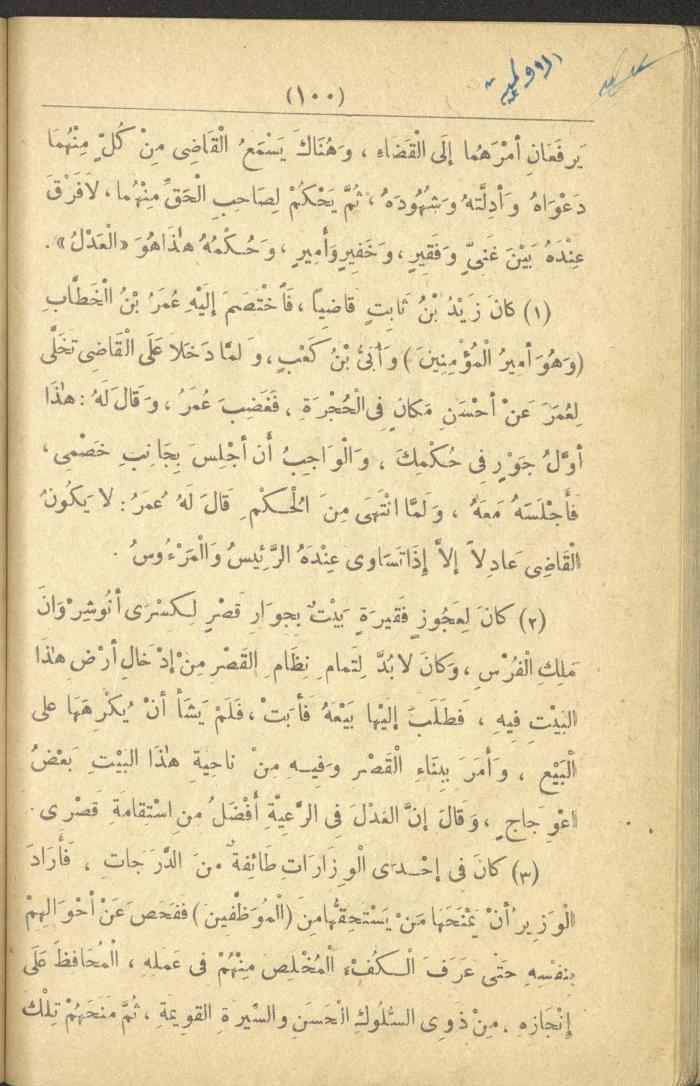 (١٠٠)
يَرفَعَانِ أمْرَهُما إلَى الْقَضَاءِ ، وَهُنَاكَ يَسْمَعُ الْقَاضِى مِنْ كُلٍّ مِنْهُمَا
دَعْوَاهُ وَأدِلَّتهُ وَشُهُودَهُ ، ثُمَّ يَحْكُمْ لِصَاحِبِ الْحَقِّ مِنْهُما ، لاَفَرْقَ
عِنْدَهُ بَيْنَ غَنىٍّ وَفَقِيرٍ ، وَخَفِيرٍ وَأمِيرٍ ، وَحُكْمُهُ هٰذَاهُوَ «الْعَدْلُ» .
(١) كانَ زَيْدُ بْنُ ثَابِتٍ قاضِياً ، فَاخْتَصَمَ إلَيْهِ عُمَرُ بْنُ الْخَطَّابِ
(وَهُوَ أمِيرُ الْمُؤْمِنِينَ) وَأُبَىُّ بْنُ كَعْبٍ ، وَلمَّا دَخَلاَ عَلَى الْقَاضِى تَخَلَّى
لِعُمَرَ عَنْ أحْسَنِ مَكانٍ فِى الْحُجْرَةِ ، فَغَضِبَ عُمَرُ ، وَقَالَ لَهُ : هٰذَا
أوَّلُ جَوْرٍ فِى حُكْمِكَ ، وَالْوَاجِبُ أن أجْلِسَ بِجَانِبِ خَصْمِى ،
فَأَجْلَسَهُ مَعَهُ ، وَلَمَّا انْتَهَى مِنَ الْحُكْمِ قَالَ لَهُ عُمَرُ : لا يَكُونُ
الْقَاضِى عَادِلاً إلاَّ إذَا تَسَاوى عِنْدَهُ الرَّئِيسُ وَالْمَرْءُوسُ .
(٢) كانَ لِعَجُوزٍ فَقِيرَةٍ بَيْتٌ بِجِوَارِ قَصْرٍ لِكِسْرَى أنُوشِرْوَانَ
مَلِكِ الْفُرْسِ ، وَكانَ لابُدَّ لِتَمامِ نِظَامِ القَصْرِ مِنْ إدْخَالِ أرْضِ هٰذَا
البَيْتِ فِيهِ ، فَطَلَبَ إلَيْها بَيْعَهُ فَأبَتْ ، فَلَمْ يَشَأ أنْ يُكْرِهَهَا على
الْبَيْعِ ، وَأمَرَ بِبِنَاءِ الْقَصْرِ وَفِيهِ مِنْ ناحِيةِ هٰذَا البَيْتِ بَعْضُ
اعْوِجَاجٍ ، وَقَالَ إنَّ العَدْلَ فِى الرَّعِيَّةِ أفْضَلُ مِنِ اسْتِقَامَةِ قَصْرِى .
(٣) كانَ فِى إحْدَى الْوِزَارَاتِ طَائِفَةٌ مِنَ الدَّرَجاتِ ، فَأرَادَ
الْوَزِيرُ أنْ يَمْنَحَهَا مَنْ يَسْتَحِقُّهَا مِنَ (الْمُوَظَّفِينَ) فَفَحَصَ عَنْ أحْوَالِهِمْ
بِنفْسِهِ حَتَّى عَرَفَ الْكُفْءَ الْمُخْلِصَ مِنْهُمْ فِى عَمَلِهِ ، الْمُحَافِظَ عَلَى
إنْجَازِهِ ، مِنْ ذَوِى السُّلُوكِ الْحَسَنِ وَالسِّيرَةِ القَوِيمَةِ ، ثُمَّ مَنَحَهُمْ تِلْكَ